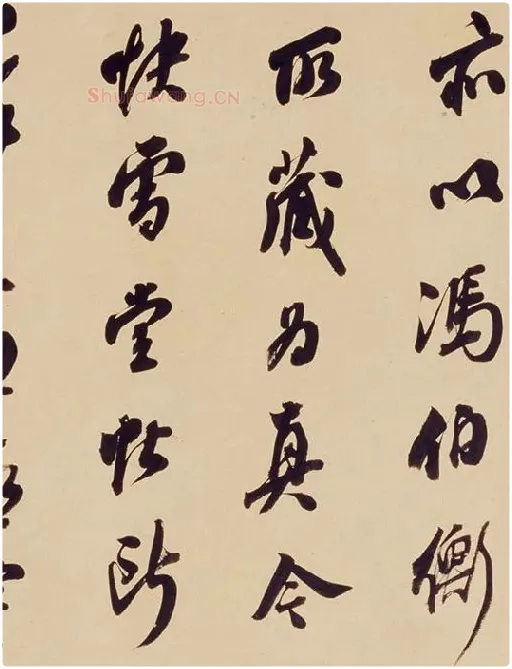 亦以馮伯衡
所藏為真今
快雪堂帖所
Shufawang.CN